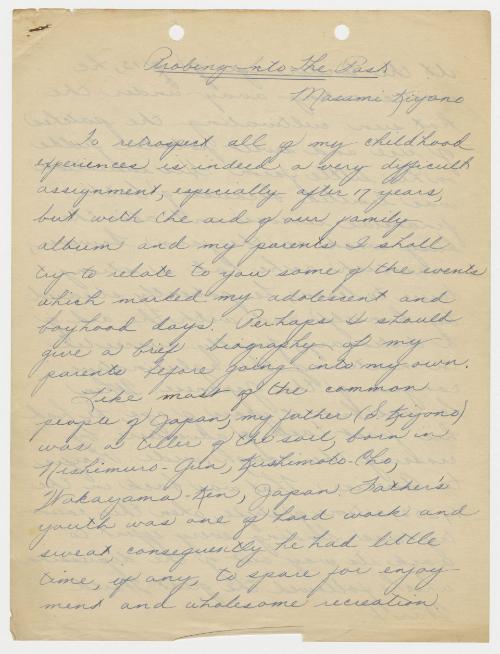 Probing Into The Past
Masumi Kiyono
To retrospect all of my childhood
experiences is indeed a very difficult
assignment, especially after 17 years,
but with the aid of our family
album and my parents I shall
try to relate to you some of the events
which marked my adolescent and
boyhood days. Perhaps I should
give a brief biography of my
parents before going into my own.
Like most of the common
people of Japan, my father (S Kiyono)
was a tiller of the soil, born in
Nishimuro-Gun, Kushimoto-Cho,
Wakayama-Ken, Japan. Father's
youth was one of hard work and
sweat, consequently he had little
time, if any, to spare for enjoy-
ment and wholesome recreation.